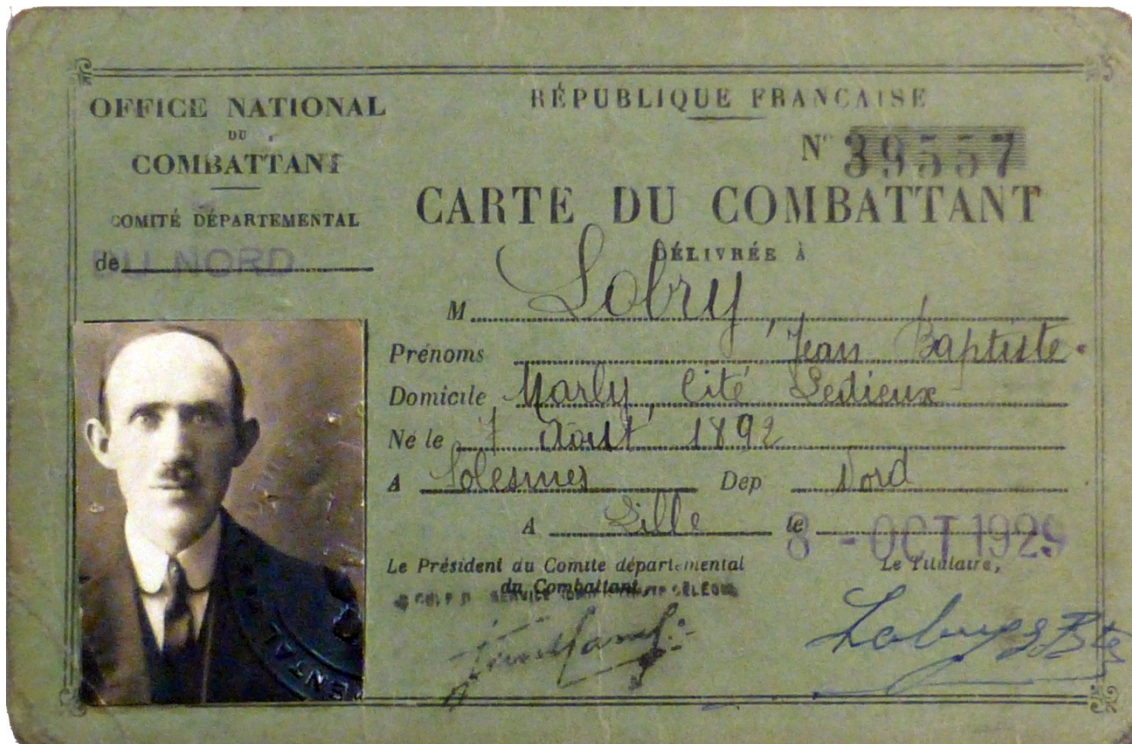 OFFICE NATIONAL
DU
COMBATTANT
COMITÉ DÉPARTEMENTAL
de DU NORD
RÉPUBLIQUE FRANÇAISE
N° 39557
CARTE DU COMBATTANT
DÉLIVRÉE À
M Lobry,
Prénoms Jean Baptiste
Domicile Marly, Cité Ledieux
Né le 7 Août 1892
A Solesmes Dep Nord
A Lille le 8 - OCT 1929
Le Président du Comité départemental
du Combattant
Le Titulaire,
SERVICE
MENTAL